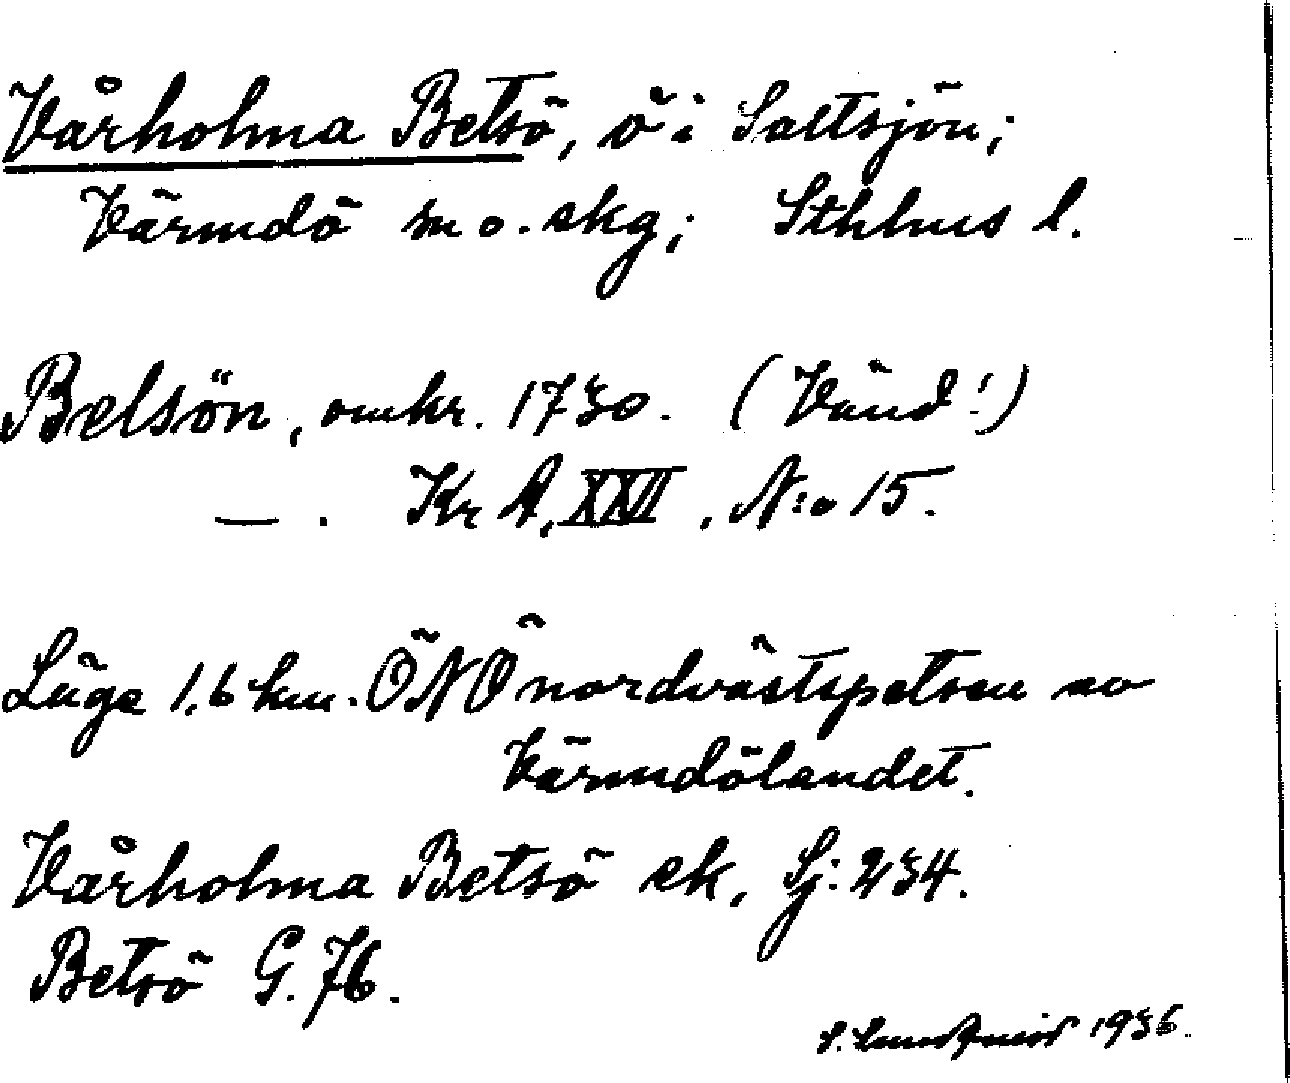 Vårholma Betsö, ö i Saltsjön;
Värmdö sn o. skg; Sthlms l.
Belsön, omkr. 1730. (Vänd!)
— . Kr A, XXVI, N:o 15.
Läge 1,6 km. ÖNÖ nordvästspetsen av
Värmdölandet.
Vårholma Betsö ek, Sj: 234.
Betsö G. 76.
1936.